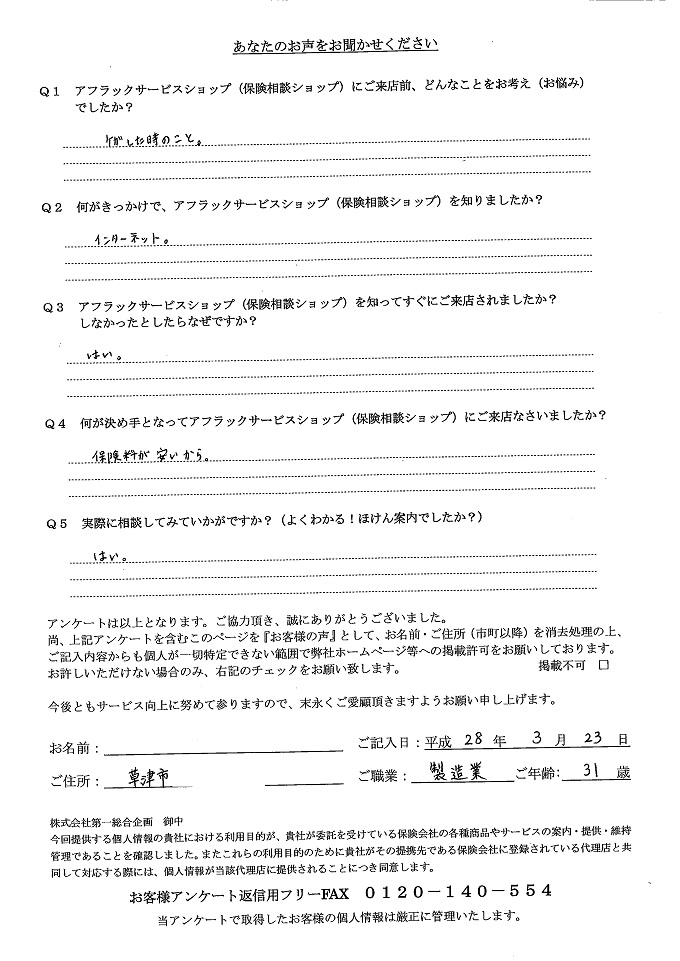 あなたのお声をお聞かせください
Q1 アフラックサービスショップ（保険相談ショップ）にご来店前、どんなことをお考え（お悩み）
でしたか？
けがした時のこと。
Q2 何がきっかけで、アフラックサービスショップ（保険相談ショップ）を知りましたか？
インターネット。
Q3 アフラックサービスショップ（保険相談ショップ）を知ってすぐにご来店されましたか？
しなかったとしたらなぜですか？
はい。
Q4 何が決め手となってアフラックサービスショップ（保険相談ショップ）にご来店なさいましたか？
保険料が安いから。
Q5 実際に相談してみていかがですか？（よくわかる！ほけん案内でしたか？）
はい。
アンケートは以上となります。ご協力頂き、誠にありがとうございました。
尚、上記アンケートを含むこのページを『お客様の声』として、お名前・ご住所（市町以降）を消去処理の上、
ご記入内容からも個人が一切特定できない範囲で弊社ホームページ等への掲載許可をお願いしております。
お許しいただけない場合のみ、右記のチェックをお願い致します。 掲載不可 □
今後ともサービス向上に努めて参りますので、末永くご愛顧頂きますようお願い申し上げます。
お名前： ご記入日：平成 28 年 3 月 23 日
ご住所： 草津市 ご職業： 製造業 ご年齢： 31 歳
株式会社第一総合企画 御中
今回提供する個人情報の貴社における利用目的が、貴社が委託を受けている保険会社の各種商品やサービスの案内・提供・維持
管理であることを確認しました。またこれらの利用目的のために貴社がその提携先である保険会社に登録されている代理店と共
同して対応する際には、個人情報が当該代理店に提供されることにつき同意します。
お客様アンケート返信用フリーFAX ０１２０－１４０－５５４
当アンケートで取得したお客様の個人情報は厳正に管理いたします。